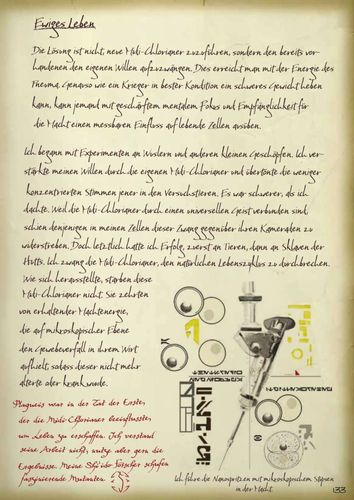 Ewiges Leben
Die Lösung ist nicht, neue Midi-Chlorianer zuzuführen, sondern den bereits vor-
handenen den eigenen Willen aufzuzwängen. Dies erreicht man mit der Energie des
Pneuma. Genauso wie ein Krieger in bester Kondition ein schweres Gewicht heben
kann, kann jemand mit geschärftem mentalem Fokus und Empfänglichkeit für
die Macht einen messbaren Einfluss auf lebende Zellen ausüben.
Ich begann mit Experimenten an Würmern und anderen kleinen Geschöpfen. Ich ver-
stärkte meinen Willen durch die eigenen Midi-Chlorianer und übertönte die weniger
konzentrierten Stimmen jener in den Versuchstieren. Es war schwerer, als ich
dachte. Weil die Midi-Chlorianer durch einen universellen Geist verbunden sind,
schien denjenigen in meinen Zellen dieser Zwang gegenüber ihren Kameraden zu
widerstreben. Doch letztlich hatte ich Erfolg, zuerst an Tieren, dann an Sklaven der
Hutts. Ich zwang die Midi-Chlorianer, den natürlichen Lebenszyklus zu durchbrechen.
Wie sich herausstellte, starben diese
Midi-Chlorianer nicht. Sie zehrten
von erhaltender Machtenergie,
die auf mikroskopischer Ebene
den Gewebeverfall in ihrem Wirt
aufhielt, sodass dieser nicht mehr
alterte oder krank wurde.
Plagueis war in der Tat der Erste,
der die Midi-Chlorianer beeinflusste,
um Leben zu erschaffen. Ich verstand
seine Arbeit nicht, nutzte aber gern die
Ergebnisse. Meine Sith-Forscher schufen
faszinierende Mutanten.
Ich führe die Nanospritzen mit mikroskopischen Stößen
in der Macht.
133